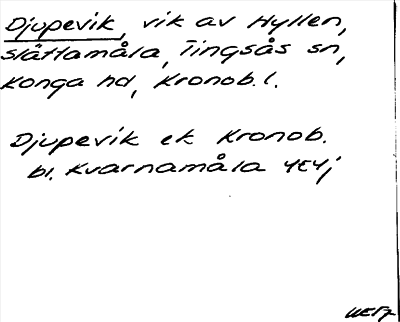 Djupevik, vik av Hyllen,
Slättamåla, Tingsås sn,
Konga hd, Kronob. l.
Djupevik ek Kronob.
bl. Kvarnamåla 4E4j